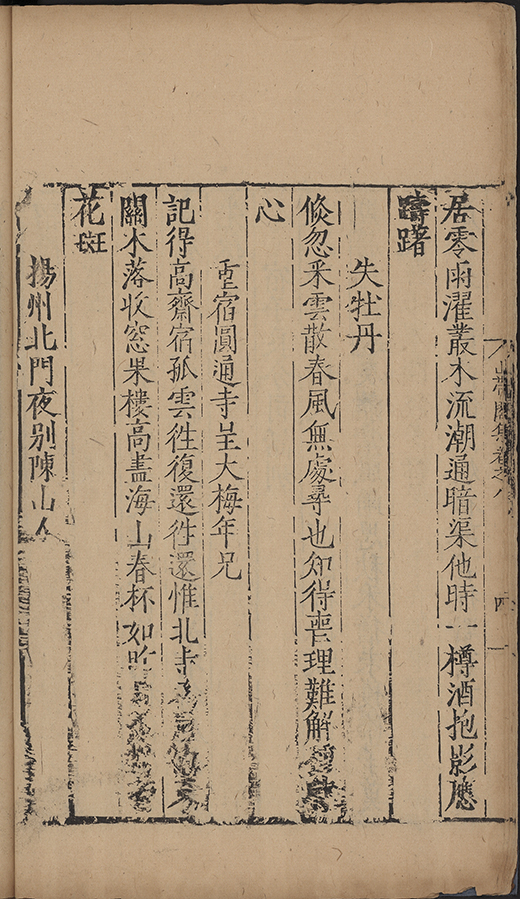 居零雨濯叢木流潮通暗渠他時一樽酒抱影應
躊躇
失牡丹
倐忽采雲散春風無處尋也知得喪理難解
心
重宿圓通寺呈大梅年兄
記得高齋宿孤雲徃復還徃還惟北寺
關木落收窓果樓高盡海山春杯如昨
花斑
揚州北門夜别陳山人
山帶閣集卷之八
四